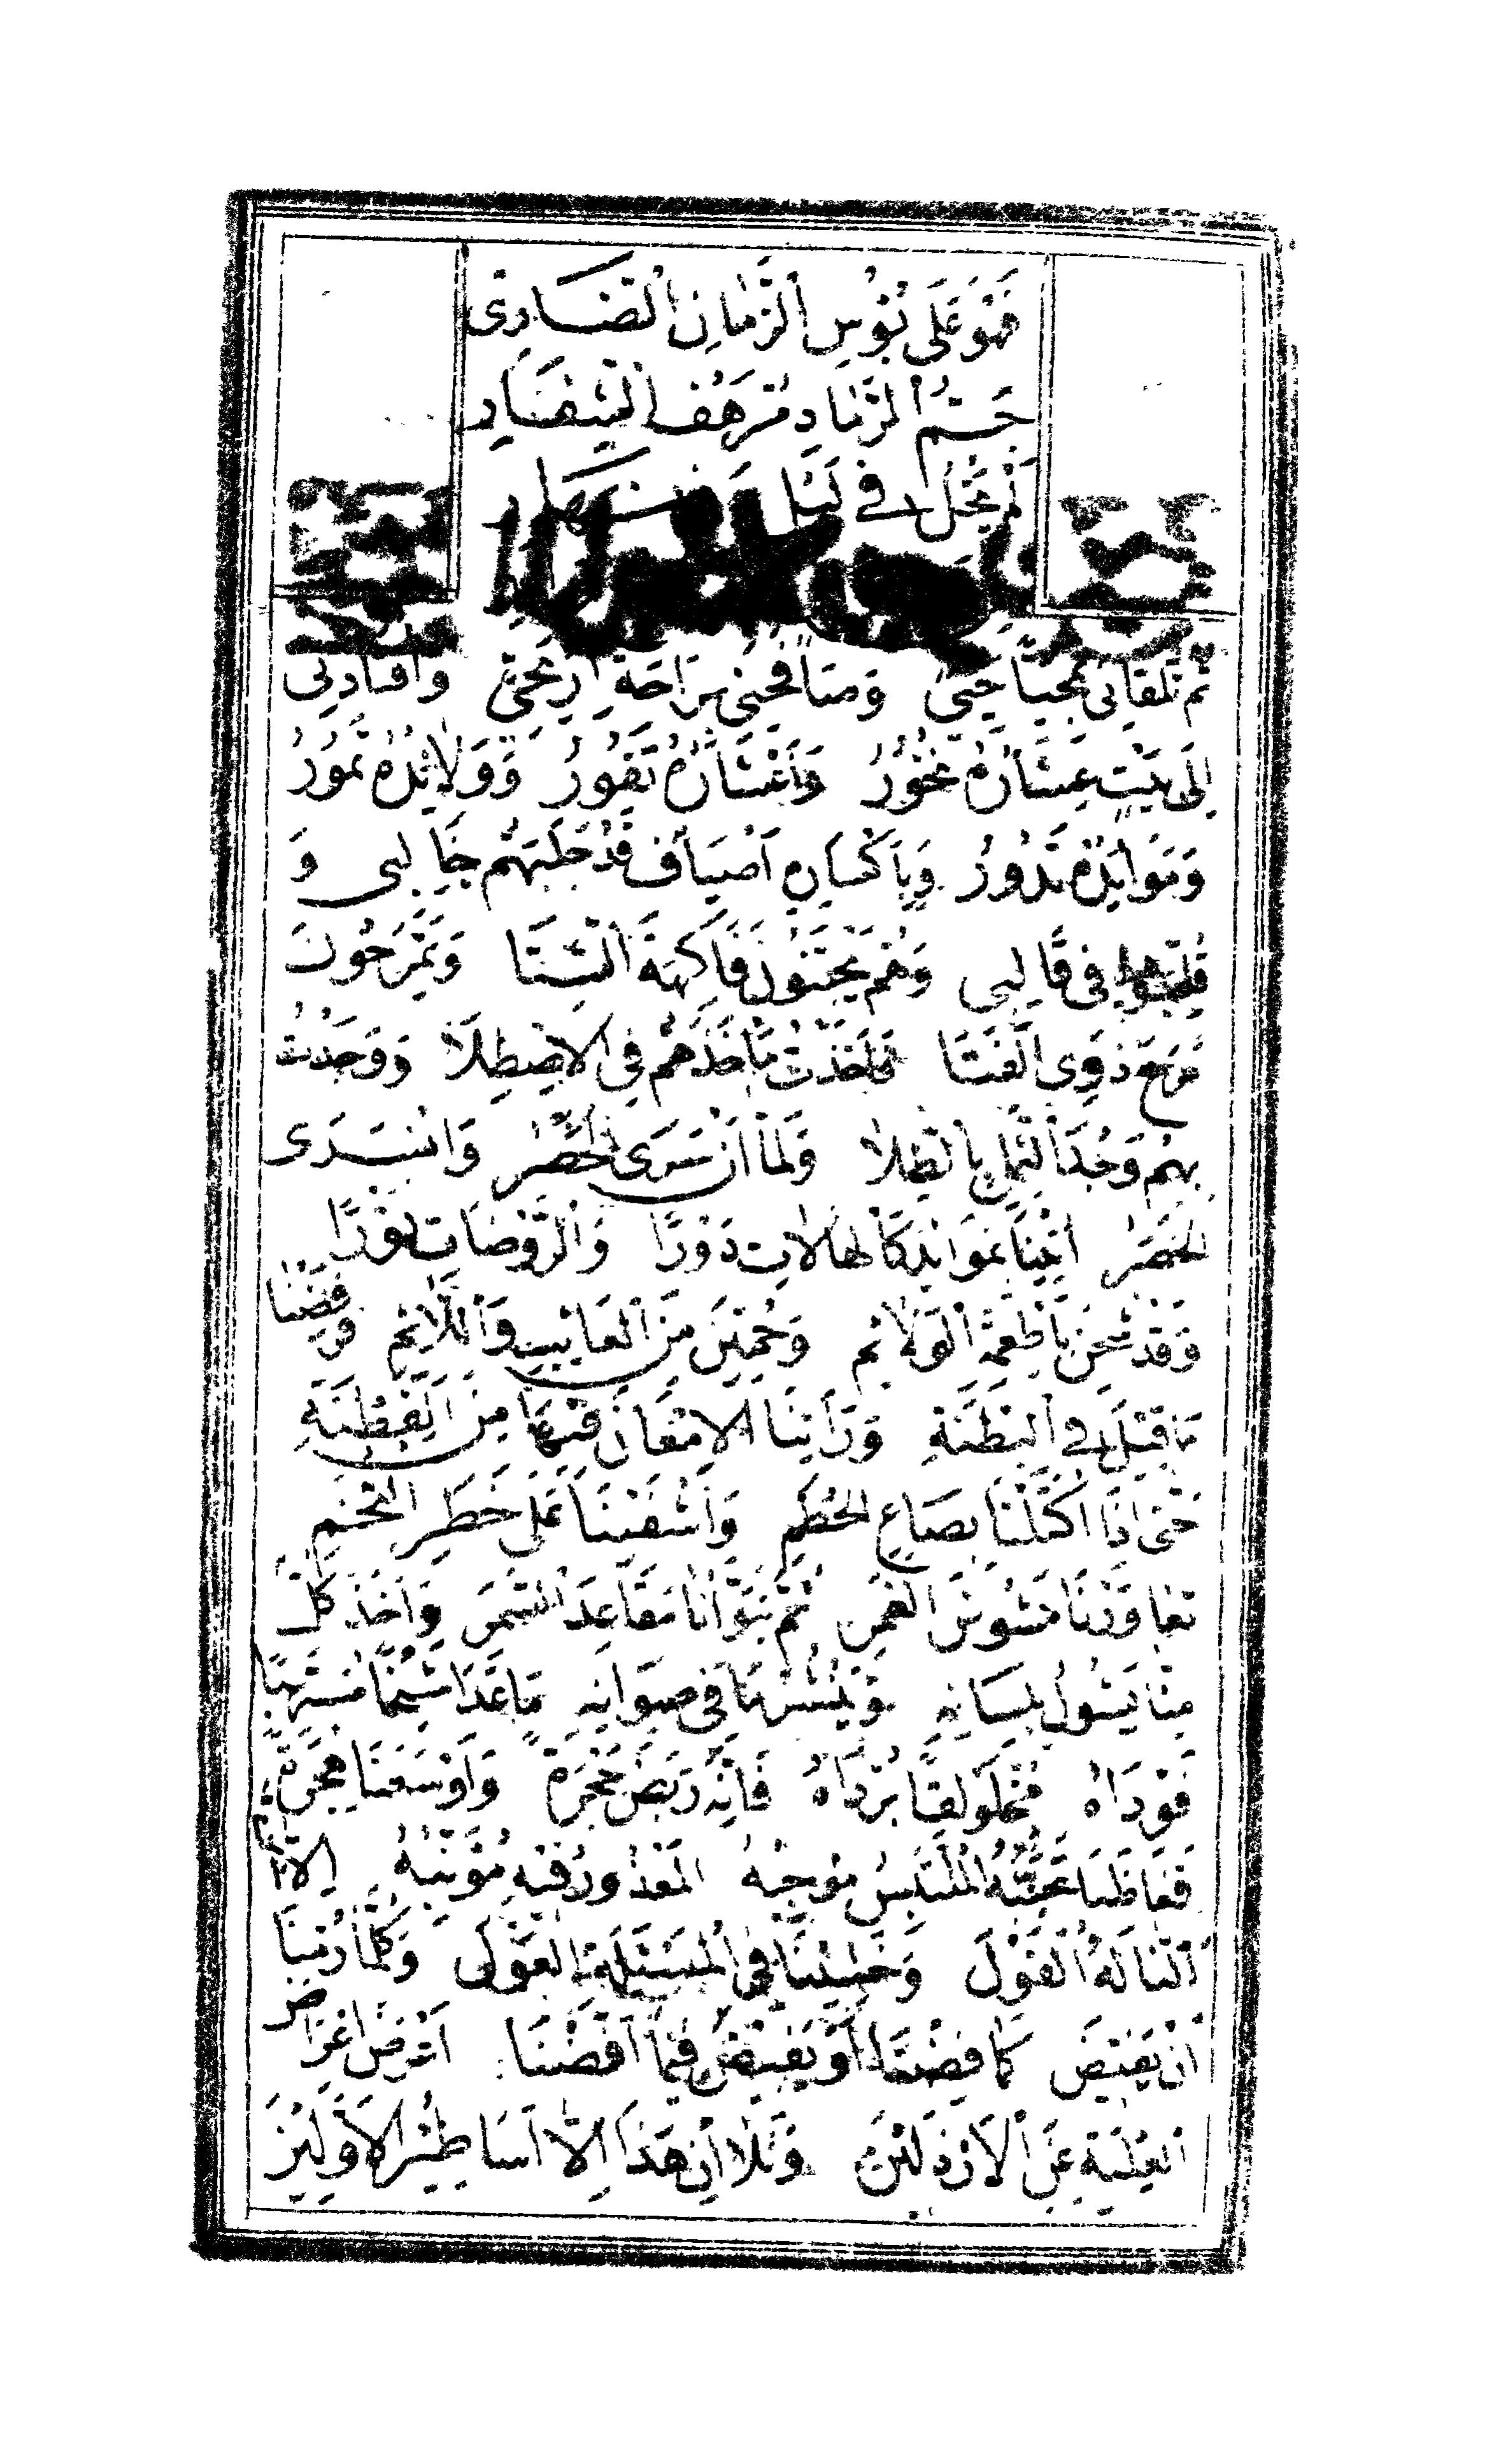 فَهْوَ عَلَى بُؤْسِ الزَّمَانِ الضَّارِي
جَمُّ الرَّمَادِ مُرْهَفُ الشِّفَارِ
لَمْ يَخْلُ فِي لَيْلٍ وَلَا نَهَارِ
ثُمَّ تَلَقَّانِي بِمُحَيَّا حَيِيٍّ وَصَافَحَنِي بِرَاحَةِ أَرْيَحِيٍّ وَاقْتَادَنِي
إِلَى بَيْتٍ عِشَارُهُ تَخُورُ وَأَعْشَارُهُ تَفُورُ وَوَلَائِدُهُ تَمُورُ
وَمَوَائِدُهُ تَدُورُ وَبِأَكْسَارِهِ أَضْيَافٌ قَدْ جَلَبَهُمْ جَالِبِي وَ
قُلِّبُوا فِي قَالِبِي وَهُمْ يَجْتَنُونَ فَاكِهَةَ الشِّتَا وَيَمْرَحُونَ
مَرَحَ ذَوِي الْفَتَا فَأَخَذْتُ مَأْخَذَهُمْ فِي الْاصْطِلَا وَوَجَدْتُ
بِهِمْ وَجْدَ الثَّمِلِ بِالطِّلَا وَلَمَّا أَنْ سَرَى الْحَصَرُ وَانْسَرَى
الْخَصَرُ أُتِينَا بِمَوَائِدَ كَالْهَالَاتِ دَوْرًا وَالرَّوْضَاتِ نَوْرًا
وَقَدْ شُحِنَّ بِأَطْعِمَةِ الْوَلَائِمِ وَحُمِينَ مِنَ الْعَائِبِ وَاللَّائِمِ فَرَفَضْنَا
مَا قِيلَ فِي الْبِطْنَةِ وَرَأَيْنَا الْإِمْعَانَ فِيهَا مِنَ الْفِطْنَةِ
حَتَّى إِذَا اكْتَلْنَا بِصَاعِ الْحُطَمِ وَأَشْفَيْنَا عَلَى خَطَرِ التُّخَمِ
تَعَاوَرْنَا مَشُوشَ الْغَمَرِ ثُمَّ تَبَوَّأْنَا مَقَاعِدَ السَّمَرِ وَأَخَذَ كُلٌّ
مِنَّا يَشُولُ بِلِسَانِهِ وَيَنْشُرُ مَا فِي صِوَانِهِ مَا عَدَا شَيْخًا مُشْتَهِبًا
فَوْدَاهُ مُخْلَوْلِقًا بُرْدَاهُ فَإِنَّهُ رَبَضَ حَجْرَةً وَأَوْسَعَنَا هِجْرَةً
فَغَاظَنَا تَجَنُّبُهُ الْمُلْتَبِسُ مُوجِبُهُ الْمَعْذُورُ فِيهِ مُؤَنِّبُهُ إِلَّا أَنَّا
أَلَنَّا لَهُ الْقَوْلَ وَخَشِينَا فِي الْمَسْئَلَةِ الْعَوْلَ وَكُلَّمَا رُمْنَا
أَنْ يَفِيضَ كَمَا فِضْنَا أَوْ يُفِيضَ فِيمَا أَفَضْنَا أَعْرَضَ إِعْرَاضَ
الْعِلْيَةِ عَنِ الْأَرْذَلِينَ وَتَلَا إِنْ هَذَا إِلَّا أَسَاطِيرُ الْأَوَّلِينَ